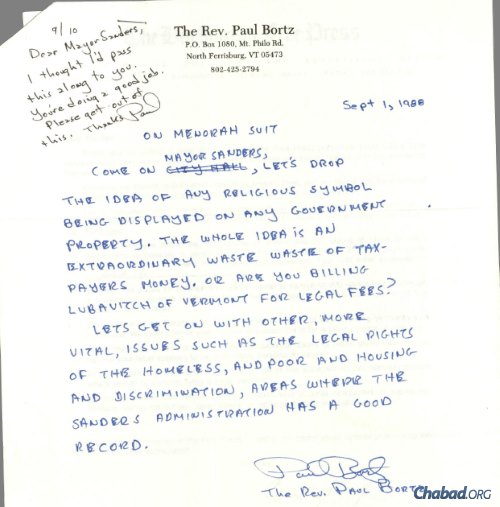 9/10
Dear Mayor Sanders,
I thought I'd pass
this along to you.
You're doing a good job.
Please get out of
this. Thanks Paul
The Rev. Paul Bortz
P.O. Box 1080, Mt. Philo Rd.
North Ferrisburg, VT 05473
802-425-2794
Sept 1, 1988
ON MENORAH SUIT
MAYOR SANDERS,
COME ON CITY HALL, LET'S DROP
THE IDEA OF ANY RELIGIOUS SYMBOL
BEING DISPLAYED ON ANY GOVERNMENT
PROPERTY. THE WHOLE IDEA IS AN
EXTRAORDINARY WASTE WASTE OF TAX-
PAYERS MONEY. OR ARE YOU BILLING
LUBAVITCH OF VERMONT FOR LEGAL FEES?
LETS GET ON WITH OTHER, MORE
VITAL, ISSUES SUCH AS THE LEGAL RIGHTS
OF THE HOMELESS, AND POOR AND HOUSING
AND DISCRIMINATION, AREAS WHERE THE
SANDERS ADMINISTRATION HAS A GOOD
RECORD.
Paul Bortz
THE REV. PAUL BORTZ
Chabad.ORG